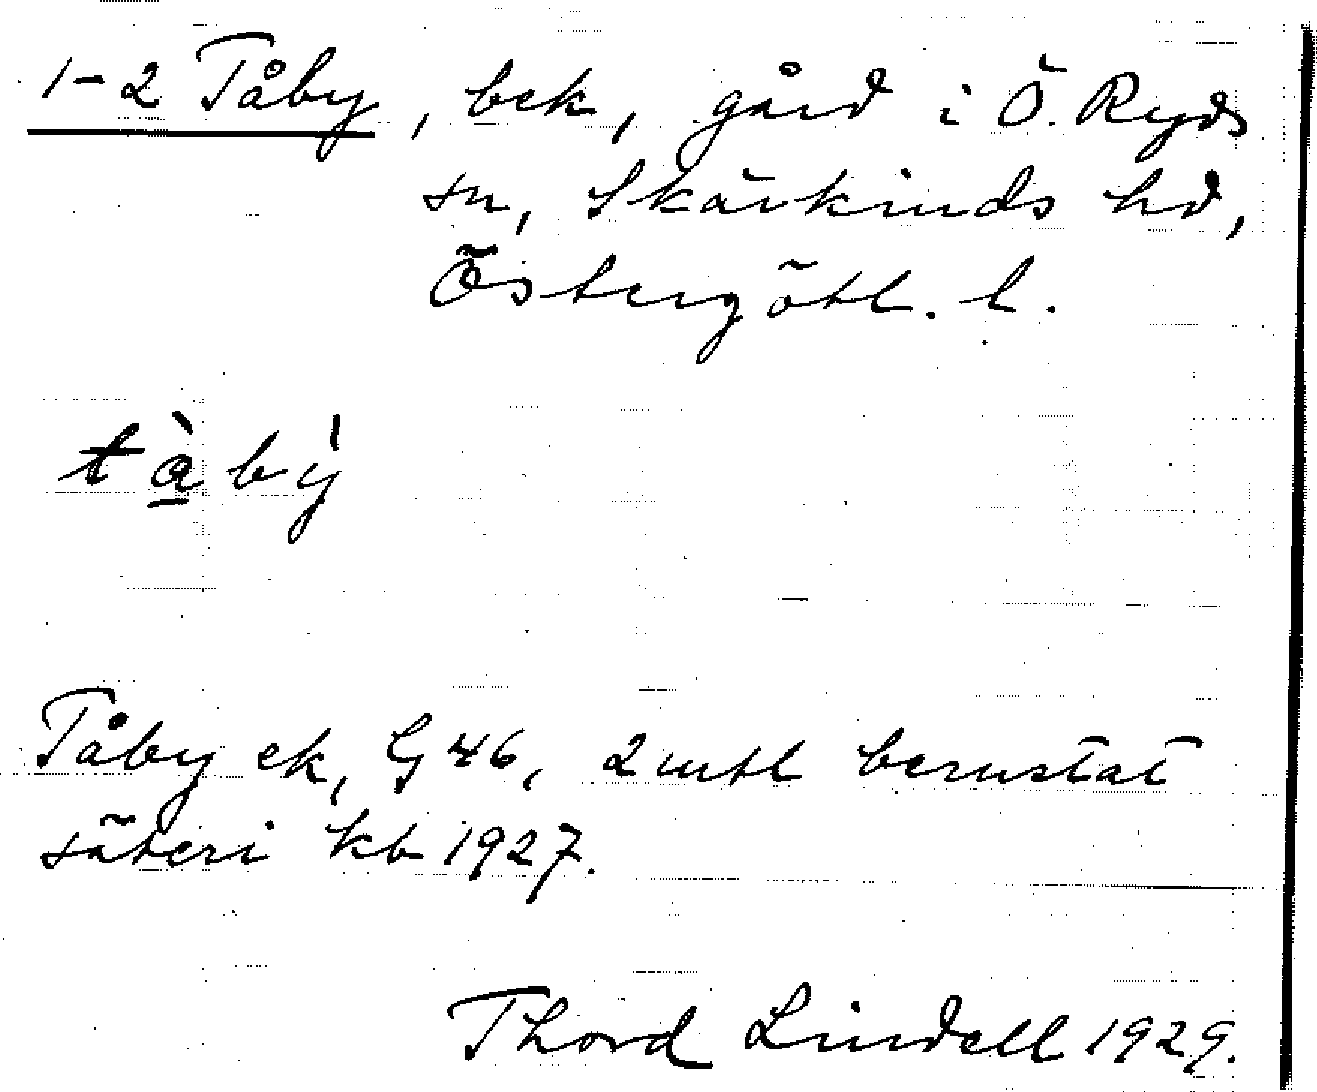 1-2 Tåby, bek, gård i Ö. Ryds
sn, Skärkinds hd,
Östergötl. l.
tà̱bý
Tåby ek, G 46, 2 mtl berustat
säteri kb 1927.
Thord Lindell 1929.